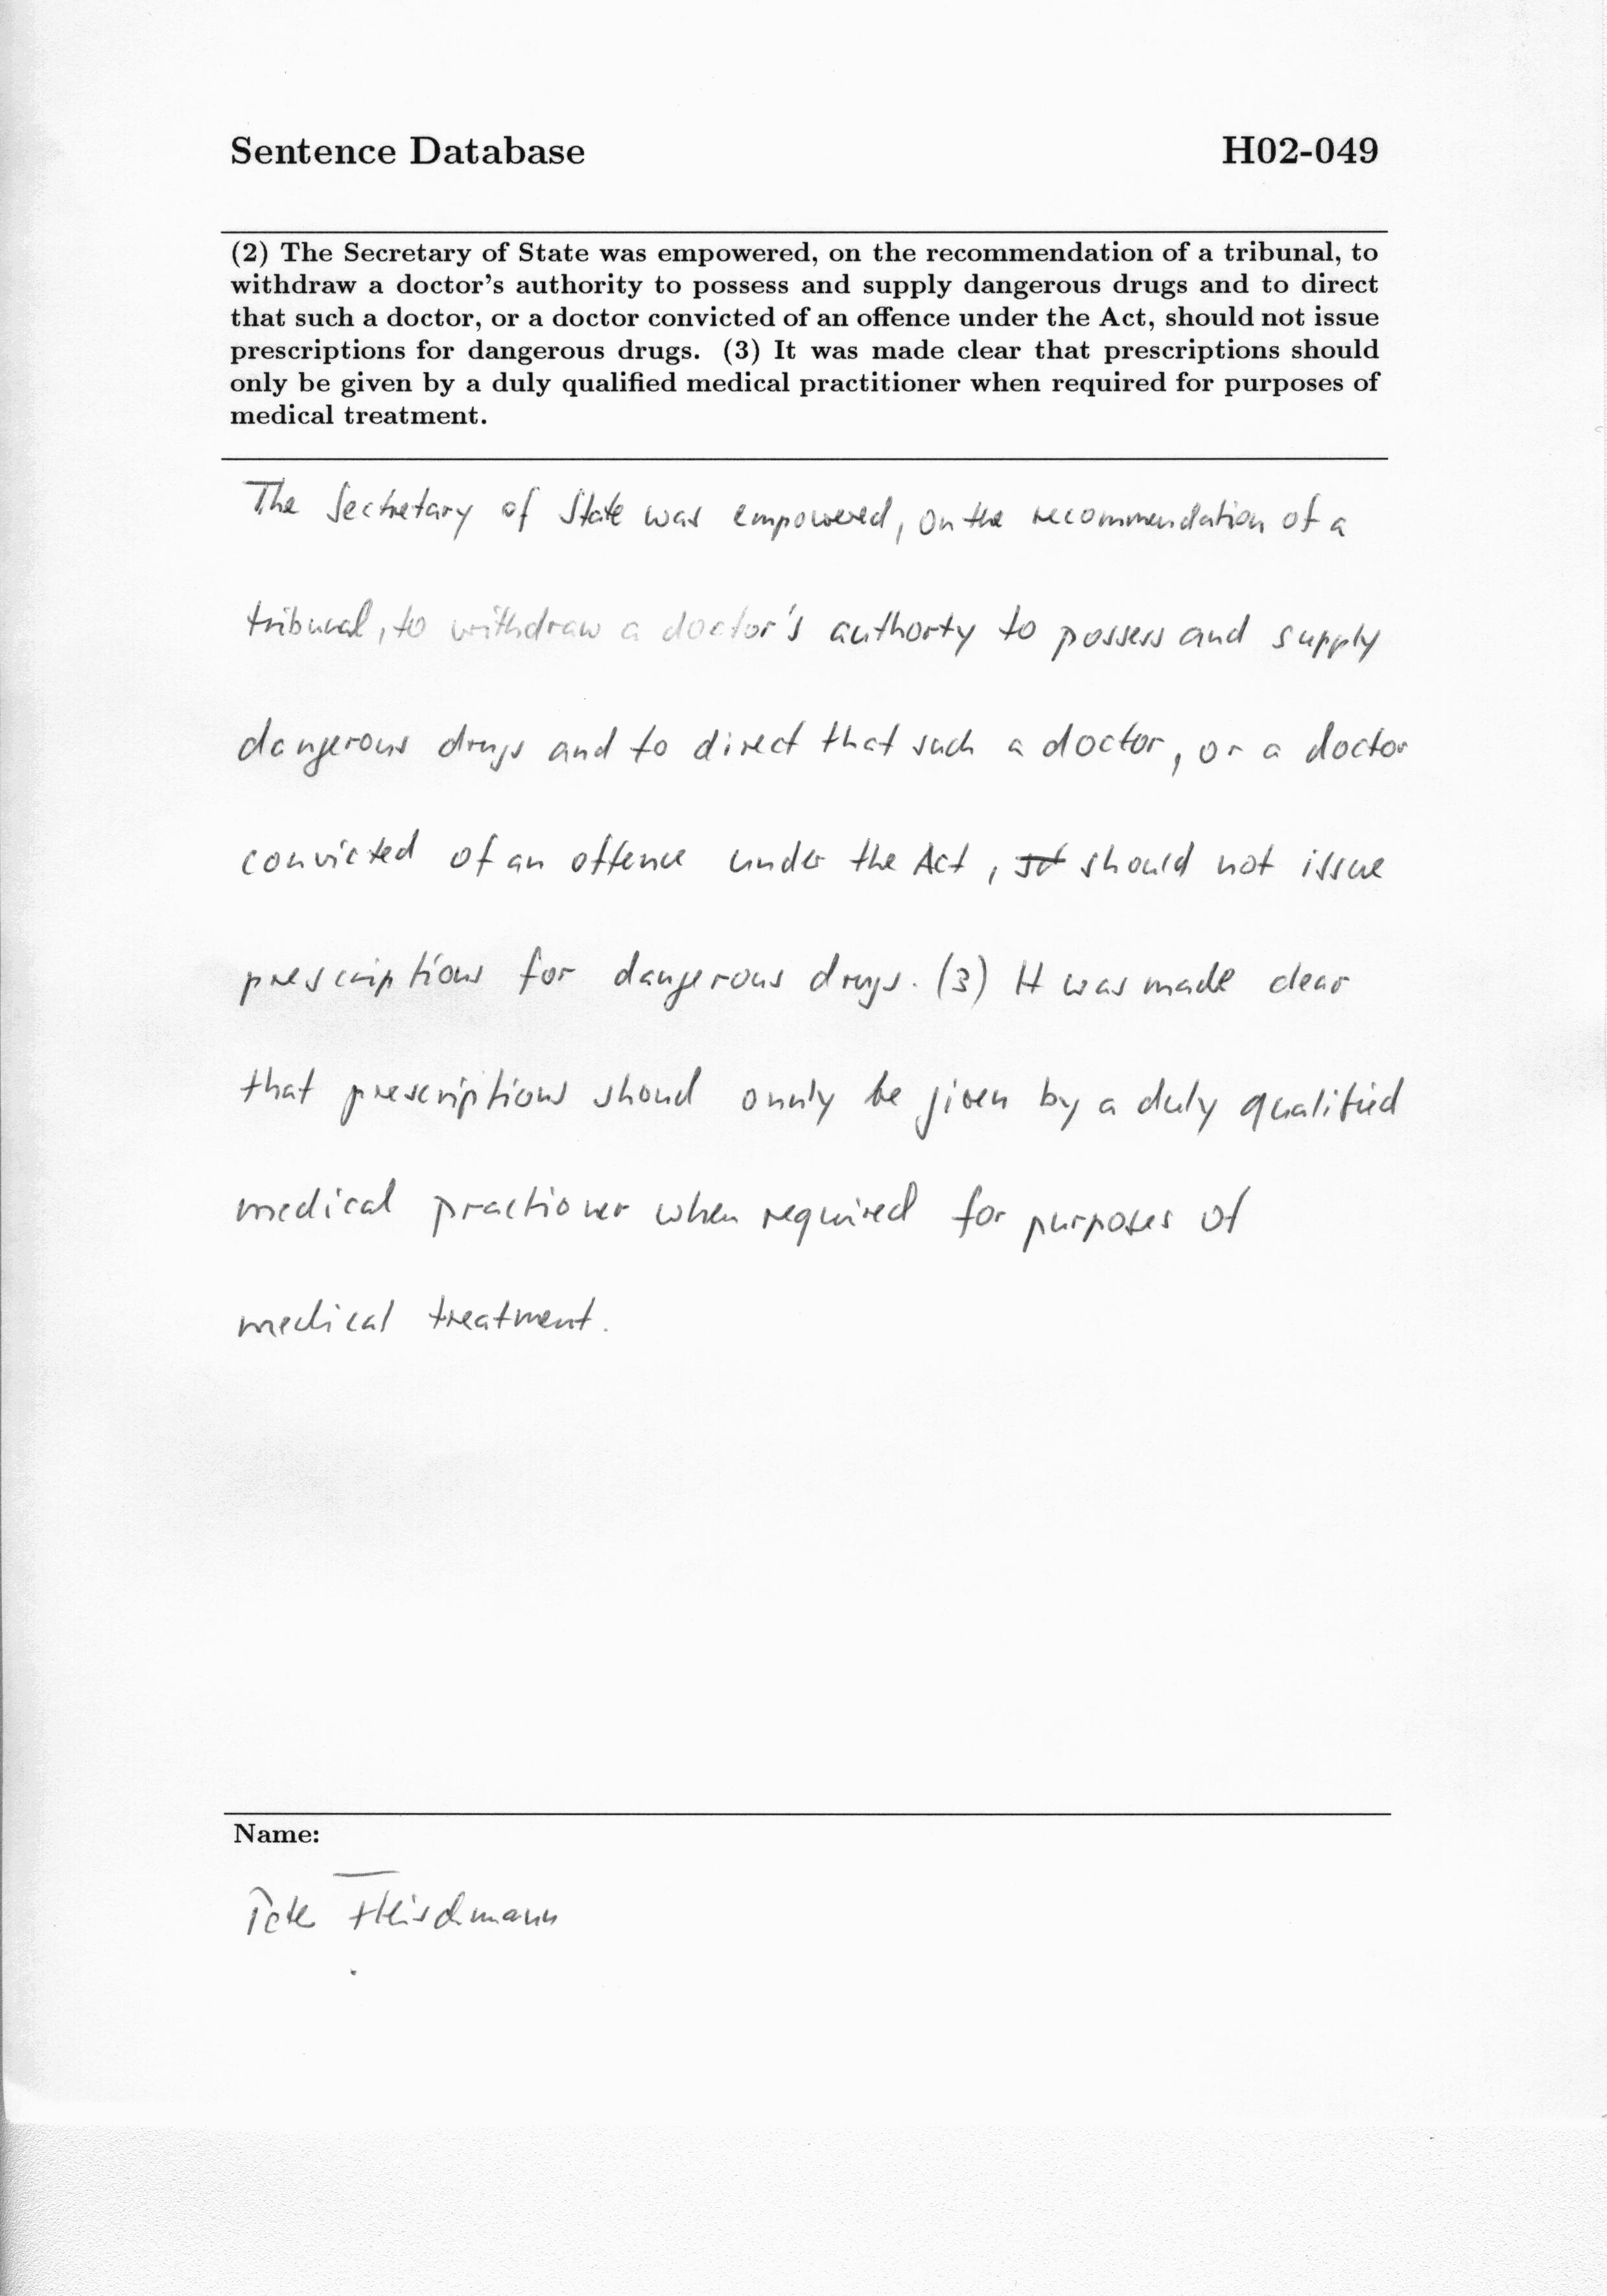 Sentence Database H02-049
(2) The Secretary of State was empowered, on the recommendation of a tribunal, to
withdraw a doctor's authority to possess and supply dangerous drugs and to direct
that such a doctor, or a doctor convicted of an offence under the Act, should not issue
prescriptions for dangerous drugs. (3) It was made clear that prescriptions should
only be given by a duly qualified medical practitioner when required for purposes of
medical treatment.
The Sectretary of State was empowered, on the recommendation of a
tribunal, to withdraw a doctor's authorty to possess and supply
dangerous drugs and to direct that such a doctor, or a doctor
convicted of an offence under the Act, should not issue
prescriptions for dangerous drugs. (3) It was made clear
that prescriptions shoud onnly be given by a duly qualified
medical practioner when required for purposes of
medical treatment.
Name:
Peter Fleischmann